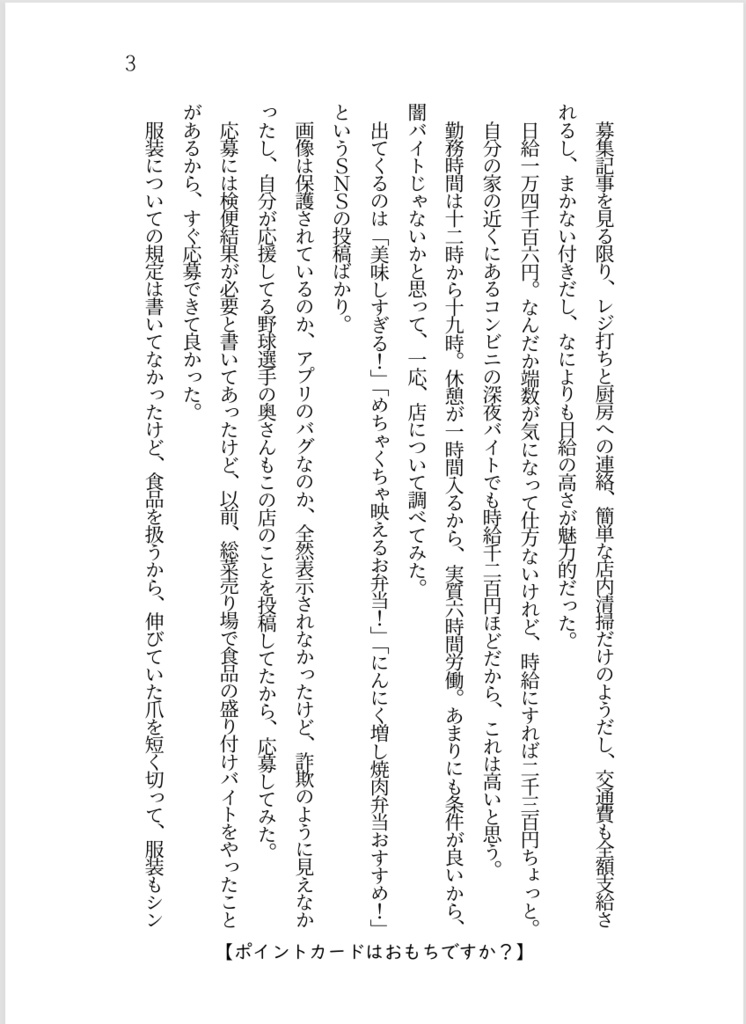 3
募集記事を見る限り、レジ打ちと厨房への連絡、簡単な店内清掃だけのようだし、交通費も全額支給さ
れるし、まかない付きだし、なによりも日給の高さが魅力的だった。
日給一万四千百六円。なんだか端数が気になって仕方ないけれど、時給にすれば二千三百円ちょっと。
自分の家の近くにあるコンビニの深夜バイトでも時給千二百円ほどだから、これは高いと思う。
勤務時間は十二時から十九時。休憩が一時間入るから、実質六時間労働。あまりにも条件が良いから、
闇バイトじゃないかと思って、一応、店について調べてみた。
出てくるのは「美味しすぎる！」「めちゃくちゃ映えるお弁当！」「にんにく増し焼肉弁当おすすめ！」
というSNSの投稿ばかり。
画像は保護されているのか、アプリのバグなのか、全然表示されなかったけど、詐欺のように見えなか
ったし、自分が応援してる野球選手の奥さんもこの店のことを投稿してたから、応募してみた。
応募には検便結果が必要と書いてあったけど、以前、総菜売り場で食品の盛り付けバイトをやったこと
があるから、すぐ応募できて良かった。
服装についての規定は書いてなかったけど、食品を扱うから、伸びていた爪を短く切って、服装もシン
【ポイントカードはおもちですか？】